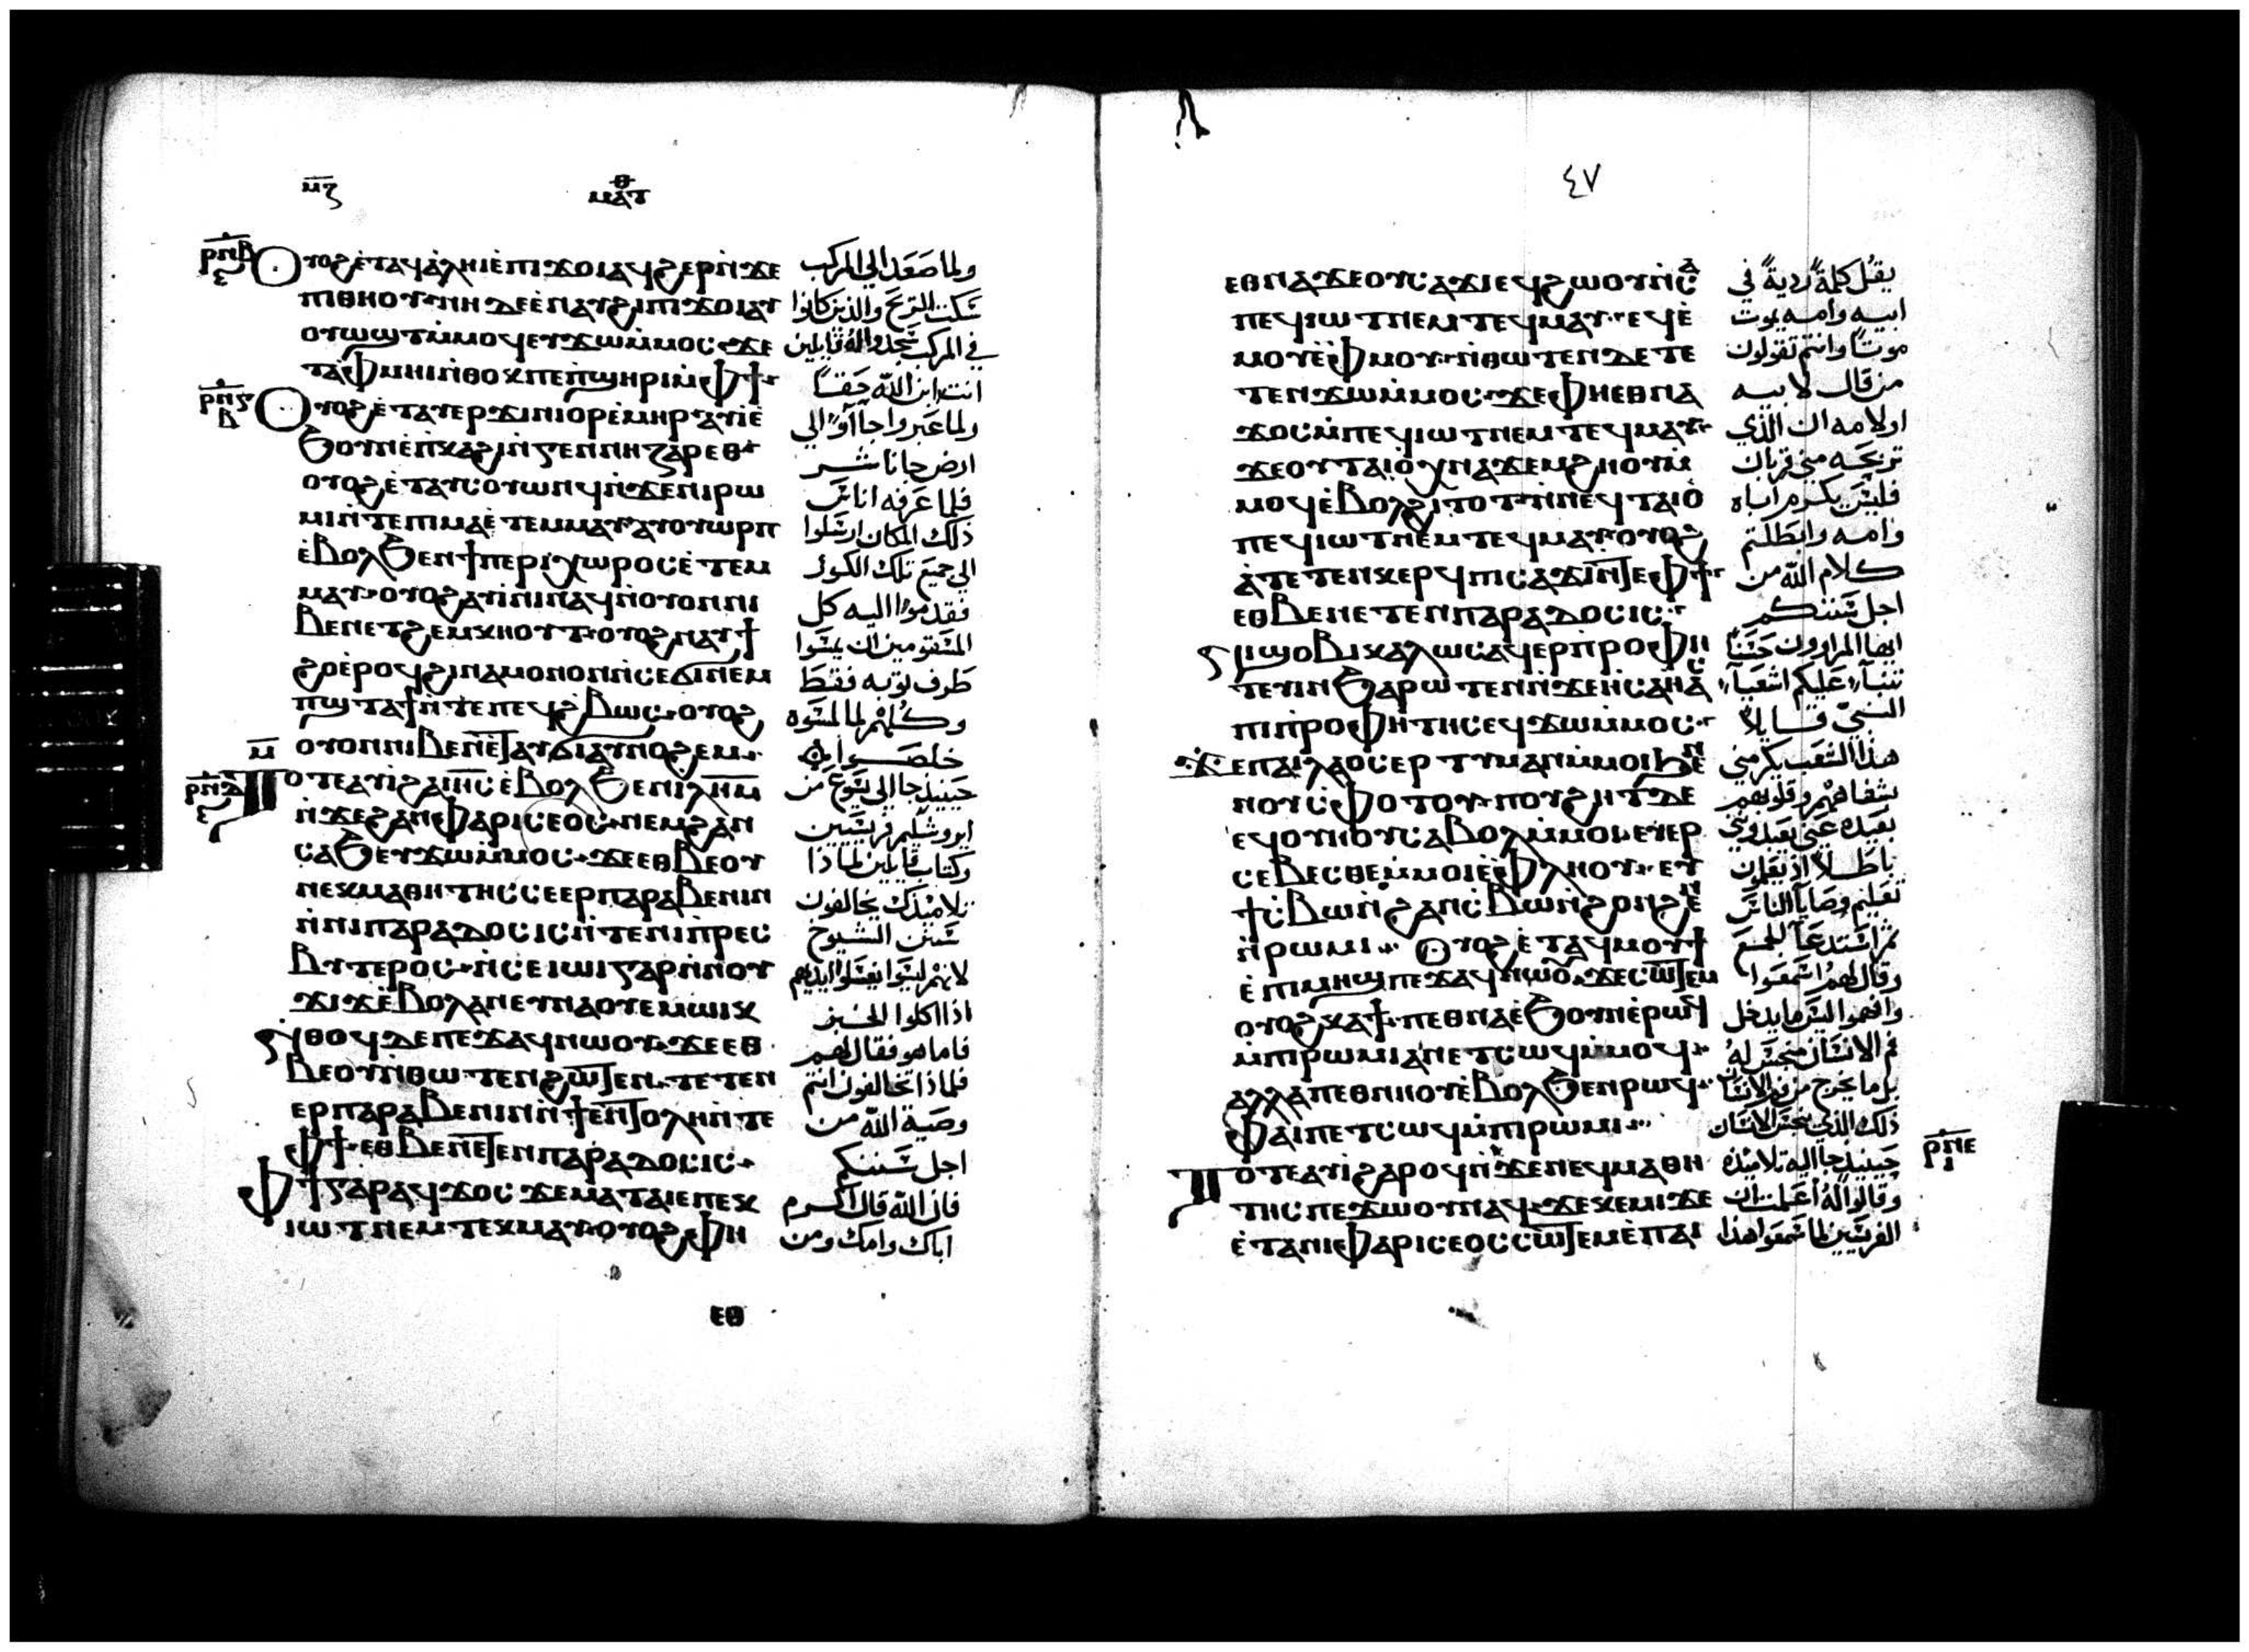 ⲙ̅ⲍ̅
ⲙⲁⲧⲑ
ⲣ̅ⲡ̅ⲃ̅
ⲉ
Ⲟⲩⲟϩ ⲉ̀ⲧⲁⲩⲁ̀ⲗⲏⲓ ⲉ̀ⲡⲓϫⲟⲓ ⲁϥϩⲉⲣⲓ ⲛ̀ϫⲉ
ⲡⲓⲑⲏⲟⲩ ⲛⲏ ⲇⲉ ⲉ̀ⲛⲁⲩϩⲓ ⲡⲓϫⲟⲓ ⲁⲩ
ⲟⲩⲱϣⲧ ⲙ̀ⲙⲟϥ ⲉⲩϫⲱ ⲙ̀ⲙⲟⲥ ϫⲉ
ⲧⲁⲫⲙⲏⲓ ⲛ̀ⲑⲟⲕ ⲡⲉ ⲡ̀ϣⲏⲣⲓ ⲙ̀ⲫϯ
Ⲟⲩⲟϩ ⲉ̀ⲧⲁⲩⲉⲣϫⲓⲛⲓⲟⲣ ⲉ̀ⲙⲏⲣ ⲁⲩⲓ̀ ⲉ̀
ϧⲟⲩⲛ ⲉ̀ⲡⲕⲁϩⲓ ⲛ̀ⲅⲉⲛⲛⲏⲍⲁⲣⲉⲑ
ⲟⲩⲟϩ ⲉ̀ⲧⲁⲩⲥⲟⲩⲱⲛϥ ⲛ̀ϫⲉ ⲛⲓⲣⲱ
ⲙⲓ ⲛ̀ⲧⲉ ⲡⲓⲙⲁ ⲉ̀ⲧⲉⲙⲙⲁⲩ ⲁⲩⲟⲩⲱⲣⲡ
ⲉ̀ⲃⲟⲗ ϧⲉⲛ ϯⲡⲉⲣⲓⲭⲱⲣⲟⲥ ⲉ̀ⲧⲉⲙ
ⲙⲁⲩ ⲟⲩⲟϩ ⲁⲩⲓ̀ⲛⲓ ⲛⲁϥ ⲛ̀ⲟⲩⲟⲛ ⲛⲓ
ⲃⲉⲛ ⲉⲧϩⲉⲙⲕⲏⲟⲩⲧ ⲟⲩⲟϩ ⲛⲁⲩϯ
ϩⲟ ⲉ̀ⲣⲟϥ ϩⲓⲛⲁ ⲙⲟⲛⲟⲛ ⲛ̀ⲥⲉϭⲓ ⲛⲉⲙ
ⲡϣⲧⲁϯ ⲛ̀ⲧⲉ ⲡⲉϥϩⲃⲱⲥ ⲟⲩⲟϩ
ⲟⲩⲟⲛ ⲛⲓⲃⲉⲛ ⲉ̀ⲧⲁⲩϭⲓ ⲁⲩⲛⲟϩⲉⲙ
Ⲧⲟⲧⲉ ⲁⲩⲓ̀ ϩⲁ ⲓⲏ̅ⲥ̅ ⲉ̀ⲃⲟⲗ ϧⲉⲛ ⲓⲗⲏ̅ⲙ̅
ⲛ̀ϫⲉ ϩⲁⲛⲫⲁⲣⲓⲥⲉⲟⲥ ⲛⲉⲙ ϩⲁⲛ
ⲥⲁϧ ⲉⲩϫⲱ ⲙ̀ⲙⲟⲥ ϫⲉ ⲉⲑⲃⲉ ⲟⲩ
ⲛⲉⲕⲙⲁⲑⲏⲧⲏⲥ ⲥⲉⲉⲣⲡⲁⲣⲁⲃⲉⲛⲓⲛ
ⲛ̀ⲛⲓⲡⲁⲣⲁⲇⲟⲥⲓⲥ ⲛ̀ⲧⲉ ⲛⲓⲡ̀ⲣⲉⲥ
ⲃⲩⲧⲉⲣⲟⲥ ⲛ̀ⲥⲉⲓⲱⲓ ⲅⲁⲣ ⲛ̀ⲛⲟⲩ
ϫⲓϫ ⲉ̀ⲃⲟⲗ ⲁⲛ ⲉⲩⲛⲁⲟⲩⲉⲙ ⲱⲓⲕ
Ⲛⲑⲟϥ ⲇⲉ ⲡⲉϫⲁϥ ⲛⲱⲟⲩ ϫⲉ ⲉⲑ
ⲃⲉ ⲟⲩ ⲛ̀ⲑⲱⲧⲉⲛ ϩⲱⲧⲉⲛ ⲧⲉⲧⲉⲛ
ⲉⲣⲡⲁⲣⲁⲃⲉⲛⲓⲛ ⲛ̀ϯⲉⲛⲧⲟⲗⲏ ⲛ̀ⲧⲉ
ⲫϯ ⲉⲑⲃⲉ ⲛⲉⲧⲉⲛⲡⲁⲣⲁⲇⲟⲥⲓⲥ
Ⲫϯ ⲅⲁⲣ ⲁϥϫⲟⲥ ϫⲉ ⲙⲁⲧⲁⲓⲉ ⲡⲉⲕ
ⲓⲱⲧ ⲛⲉⲙ ⲧⲉⲕⲙⲁⲩ ⲟⲩⲟϩ ⲫⲏ
ولما صَعَد الي المركب
سَكت الريح والذين كانوا
في المركب سجدوا له قايلين
انت ابن اللّه حَقًا
ولما عَبروا جاآوا الي
ارض جاناشر
فلما عَرفه اناس
ذلك المكان ارسلوا
الي جميع تلك الكور
فقدموا اليه كل
المسَقومين ان يمسَوا
طَرف ثوبه فقط
وكُلهُم لما لمسَوه
خلصَوا
حينيذ جا الي يسَوع من
ايروشليم فريسَيين
وكتاب قايلين لماذا
تلاميذك يخالفون
سَنن الشيوخ
لانهم ليسَوا يغسَلوا ايديهم
اذا اكلوا الخبز
فاما هو فقال لهم
فلماذا تخالفون انتم
وصَية اللّه من
اجل سَننكم
فان اللّه قال اكرم
اباك وامك ومن
ⲉⲑ
٤٧
ⲉⲑⲛⲁϫⲉ ⲟⲩⲥⲁϫⲓ ⲉϥϩⲱⲟⲩ ⲛ̀ⲥⲁ
ⲡⲉϥⲓⲱⲧ ⲛⲉⲙ ⲧⲉϥⲙⲁⲩ ⲉϥⲉ̀
ⲙⲟⲩ ϧⲉⲛ ⲟⲩⲙⲟⲩ ⲛ̀ⲑⲱⲧⲉⲛ ⲇⲉ ⲧⲉ
ⲧⲉⲛϫⲱ ⲙ̀ⲙⲟⲥ ϫⲉ ⲫⲏ ⲉⲑⲛⲁ
ϫⲟⲥ ⲙ̀ⲡⲉϥⲓⲱⲧ ⲛⲉⲙ ⲧⲉϥⲙⲁⲩ
ϫⲉ ⲟⲩⲧⲁⲓⲟ̀ ⲭⲛⲁϫⲉⲙϩⲏⲟⲩ ⲙ̀
ⲙⲟϥ ⲉ̀ⲃⲟⲗ ϩⲓⲧⲟⲧ ⲛ̀ⲛⲉϥⲧⲁⲓⲟ̀
ⲡⲉϥⲓⲱⲧ ⲛⲉⲙ ⲧⲉϥⲙⲁⲩ ⲟⲩⲟϩ
ⲁ̀ⲧⲉⲧⲉⲛⲕⲉⲣϥ ⲡⲓⲥⲁϫⲓ ⲛ̀ⲧⲉ ⲫϯ
ⲉⲑⲃⲉ ⲛⲉⲧⲉⲛⲡⲁⲣⲁⲇⲟⲥⲓⲥ
Ⲛⲓϣⲟⲃⲓ ⲕⲁⲗⲱⲥ ⲁϥⲉⲣⲡ̀ⲣⲟⲫⲏ
ⲧⲉⲩⲓⲛ ϧⲁⲣⲱⲧⲉⲛ ⲛ̀ϫⲉ ⲏⲥⲁⲏⲁⲥ
ⲡⲓⲡ̀ⲣⲟⲫⲏⲧⲏⲥ ⲉϥϫⲱ ⲙ̀ⲙⲟⲥ
ϫⲉ ⲡⲁⲓⲗⲁⲟⲥ ⲉⲣⲧⲓⲙⲁⲛ ⲙ̀ⲙⲟⲓ ϧⲉⲛ
ⲛⲟⲩⲥⲫⲟⲧⲟⲩ ⲡⲟⲩϩⲏⲧ ⲇⲉ
ⲉϥⲟⲩⲏⲟⲩ ⲥⲁⲃⲟⲗ ⲙ̀ⲙⲟⲓ ⲉⲩⲉⲣ
ⲥⲉⲃⲉⲥⲑⲉ ⲙ̀ⲙⲟⲓ ⲉ̀ⲫⲗⲏⲟⲩ ⲉⲩ
ϯⲥⲃⲱ ⲛ̀ϩⲁⲛⲥⲃⲱ ⲛ̀ϩⲟⲛϩⲉⲛ
ⲛ̀ⲣⲱⲙⲓ Ⲟⲩⲟϩ ⲉ̀ⲧⲁϥⲙⲟⲩϯ
ⲉ̀ⲡⲓⲙⲏϣ ⲡⲉϫⲁϥ ⲛⲱⲟⲩ ϫⲉ ⲥⲱⲧⲉⲙ
ⲟⲩⲟϩ ⲕⲁϯ ⲡⲉⲑⲛⲁ ⲉ̀ϧⲟⲩⲛ ⲉ̀ⲣⲱϥ
ⲙ̀ⲡⲓⲣⲱⲙⲓ ⲁⲛ ⲉⲧⲥⲱϥ ⲙ̀ⲙⲟϥ
ⲁⲗⲗⲁ ⲡⲉⲑⲛⲏⲟⲩ ⲉ̀ⲃⲟⲗ ϧⲉⲛ ⲣⲱϥ
ⲫⲁⲓ ⲡⲉⲧⲥⲱϥ ⲙ̀ⲡⲓⲣⲱⲙⲓ
Ⲧⲟⲧⲉ ⲁⲩⲓ̀ ϩⲁⲣⲟϥ ⲛ̀ϫⲉ ⲛⲉϥⲙⲁⲑⲏ
ⲧⲏⲥ ⲡⲉϫⲱⲟⲩ ⲛⲁϥ ϫⲉ ⲕⲉⲙⲓ ϫⲉ
ⲉ̀ⲧⲁ ⲛⲓⲫⲁⲣⲓⲥⲉⲟⲥ ⲥⲱⲧⲉⲙ ⲉ̀ⲡⲁⲓ
يقُل كلمةً رديةً في
ابيه وامه يموت
موتًا وانتم تقولون
من قال لابيه
اولامه ان الذي
تربحَه مني قربان
فليسَ يكرم اباه
وامه وابطَلتم
كلام اللّه من
اجل سَننكم
ايها المراوون حَسَنًا
تنبآ عَليكم اشعَيآ
النبيّ قايلًا
هذا الشَعَب يكرمني
بشفاههُم وقلوبهم
بعَيده عَني يعَبدونني
باطَلًا اذ يعَلمون
تعَليم وصَايا الناس
ثم استدعَا الجمَع
وقال لهُم اسمعَوا
وافهموا ليسَ ما يدخل
فم الانسَان ينجسَ لهُ
بل ما يخرج من فم الانسَان
ذلك الذي ينجسَ الانسَان
حينيذ جا اليه تلاميذه
وقالوا لهُ أعَلمت ان
الفريسَيين لما سَمعَوا هذا
ⲣ̅ⲡ̅ⲉ̅